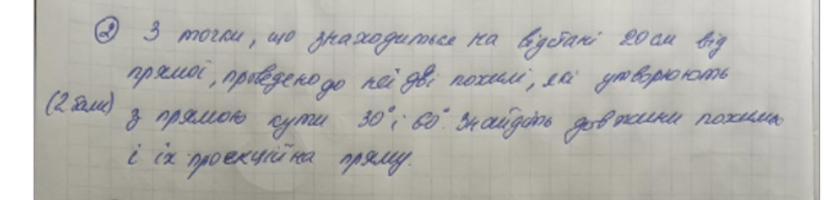 ② З точки, що знаходиться на відстані 20 см від
прямої, проведено до неї дві похилі, які утворюють
(2 бали) з прямою кути 30° і 60°. Знайдіть довжини похилих
і їх проєкцій на пряму.